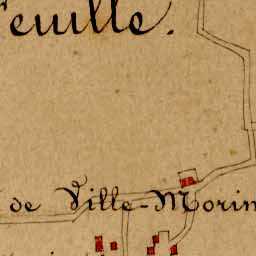 euille.
de Ville-Morin